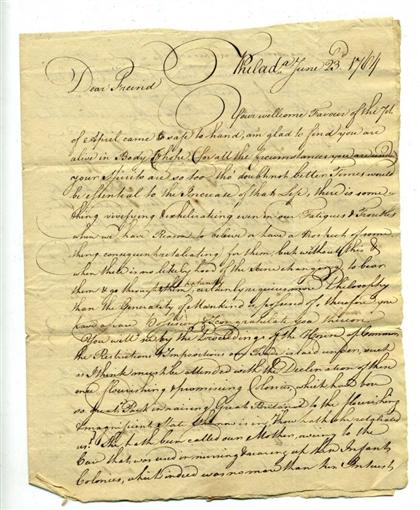 Philad.a June 23d. 1764
Dear Friend
Your wellcome Favour of the 7th.
of April came safe to hand, am glad to find you are
alive in Body & hope (for all the Circumstances you are under)
your Spirits are so too tho' doubt not better Times would
be essential to the Increase of that Life, there is some
thing vivifying & exhilerating even in our Fatigues & Troubles
when we have Reason to believe or have a Prospect of some
thing consequent retaliating for them, but without this &
when there is no likelyhood of the Scene changing to bear
them & go through them patiently certainly requires more Philosophy
than the Generality of Mankind is possessed of, therefore you
have of your Possessing I congratulate you thereon
You will see by the Proceedings of the House of Commons
the Restrictions & Impositions our Trade is laid under, such
as I think must be attended with the Declination of these
once flourishing & promising Colonies, which have bore
so great Part in raising Great Britain to the flourishing
& magnificent State She now is in,
us. She hath been called our Mother, owing to the
Care that was used in nursing & rearing up these Infant
Colonies, which indeed was no more than her Interest